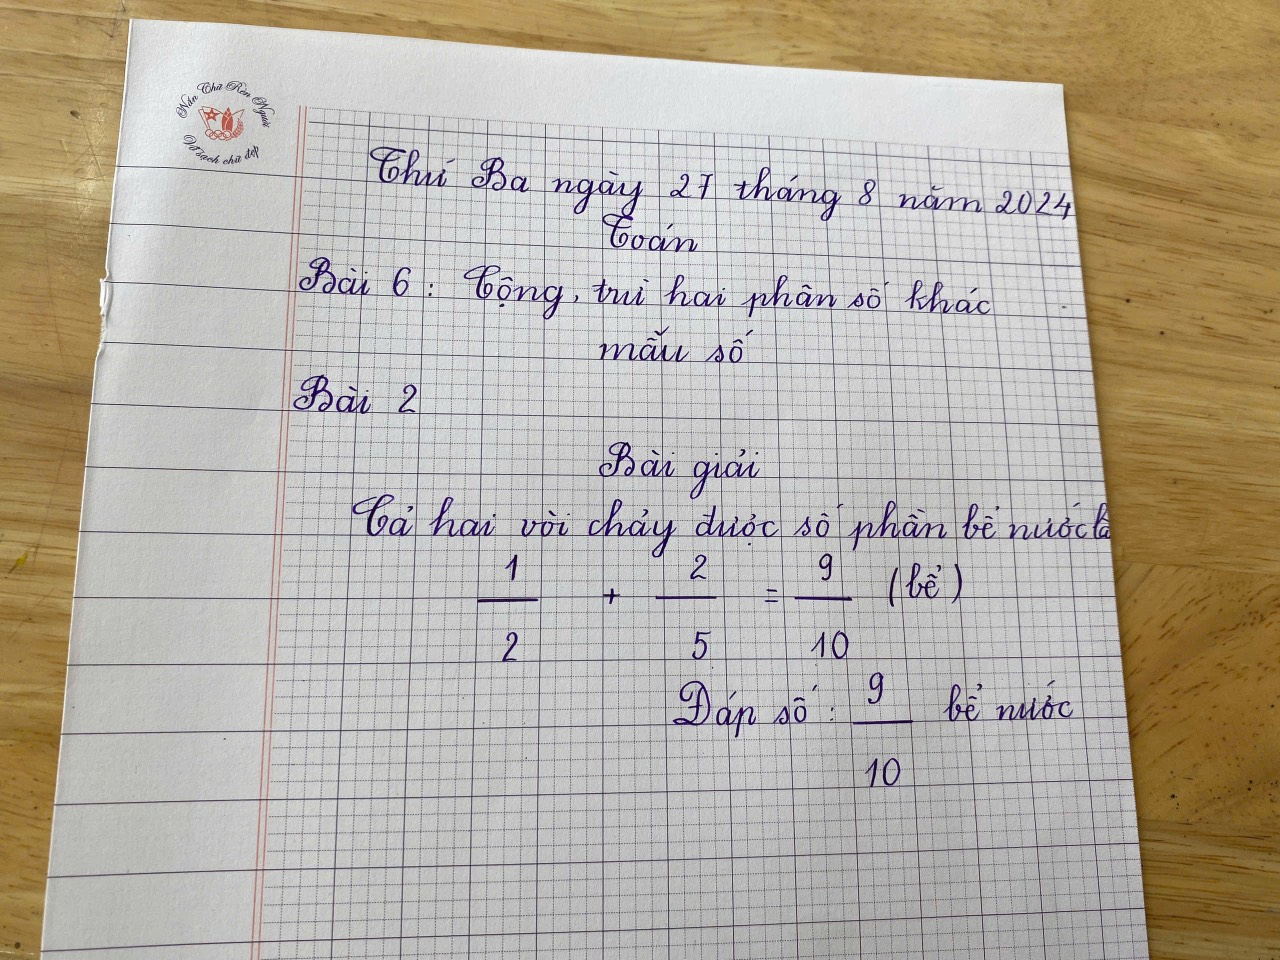 Nắn Chữ Rèn Người
Vở sạch chữ đẹp
Thứ Ba ngày 27 tháng 8 năm 2024
Toán
Bài 6: Cộng, trừ hai phân số khác
mẫu số
Bài 2
Bài giải
Cả hai vòi chảy được số phần bể nước là
1/2 + 2/5 = 9/10 (bể)
Đáp số: 9/10 bể nước